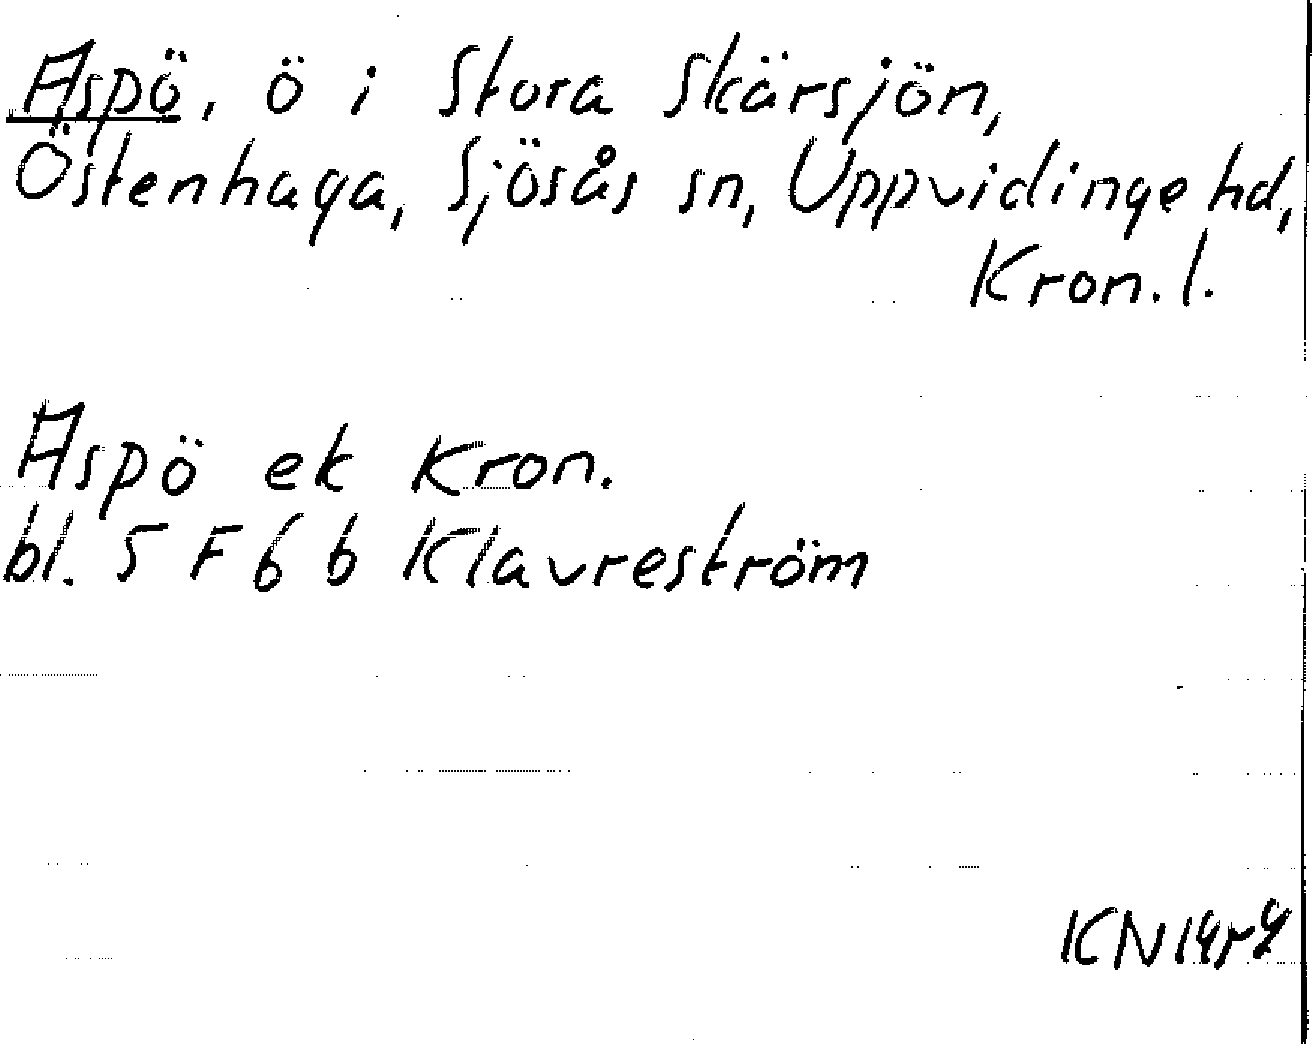 Aspö, ö i Stora Skärsjön,
Östenhaga, Sjösås sn, Uppvidinge hd,
Kron. l.
Aspö ek Kron.
bl. 5 F 6 b Klavreström